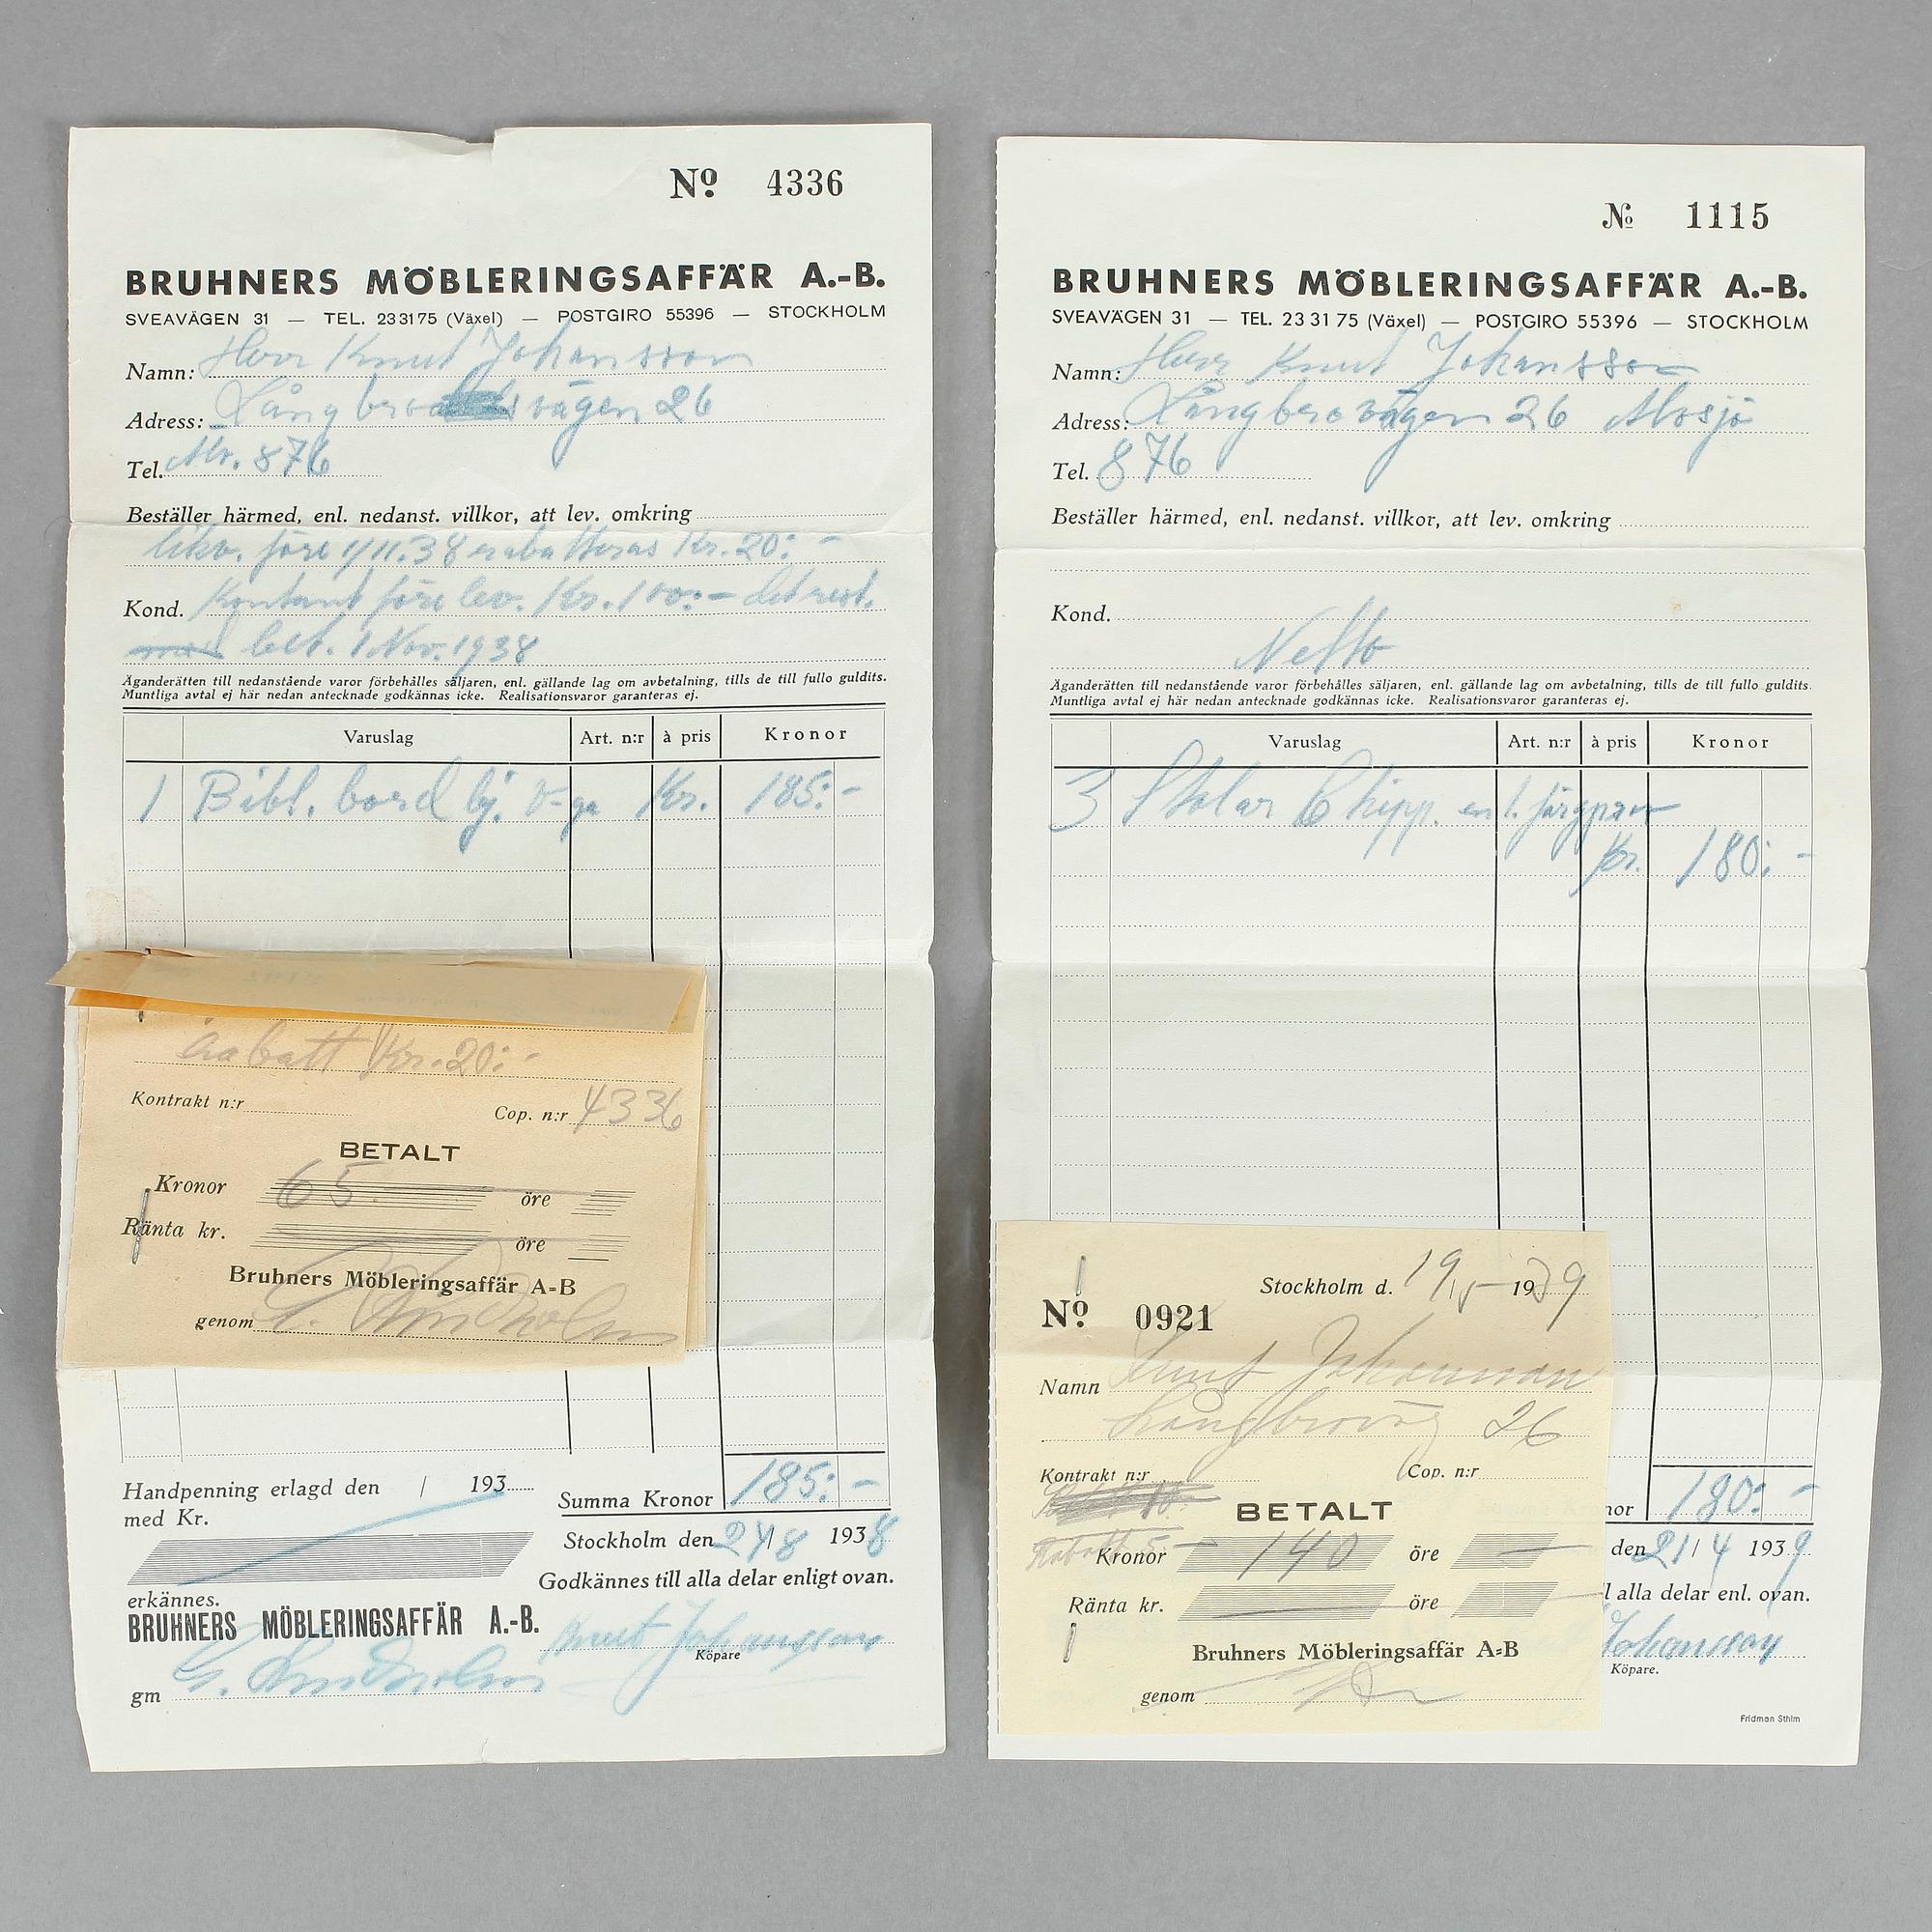 Nº 4336
BRUHNERS MÖBLERINGSAFFÄR A.-B.
SVEAVÄGEN 31 — TEL. 23 31 75 (Växel) — POSTGIRO 55396 — STOCKHOLM
Namn: Herr Knut Johansson
Adress: Långbro vägen 26
Tel. Älv. 876
Beställer härmed, enl. nedanst. villkor, att lev. omkring
likv. före 1/11.38 rabatteras Kr. 20:-
Kond. Kontant före lev. Kr. 100:- det rest.
bet. 1 Nov. 1938
Äganderätten till nedanstående varor förbehålles säljaren, enl. gällande lag om avbetalning, tills de till fullo guldits.
Muntliga avtal ej här nedan antecknade godkännas icke. Realisationsvaror garanteras ej.
Varuslag Art. n:r à pris Kronor
1 Bibl. bord bj. Kr. 185:-
rabatt Kr. 20:-
Kontrakt n:r Cop. n:r 4336
BETALT
Kronor 65 öre
Ränta kr. öre
Bruhners Möbleringsaffär A-B
genom G. Lindholm
Handpenning erlagd den / 193
med Kr.
erkännes.
Summa Kronor 185:-
Stockholm den 24/8 1938
Godkännes till alla delar enligt ovan.
BRUHNERS MÖBLERINGSAFFÄR A.-B.
Knut Johansson
Köpare
gm G. Lindholm
№ 1115
BRUHNERS MÖBLERINGSAFFÄR A.-B.
SVEAVÄGEN 31 — TEL. 23 31 75 (Växel) — POSTGIRO 55396 — STOCKHOLM
Namn: Herr Knut Johansson
Adress: Långbrovägen 26 Älvsjö
Tel. 876
Beställer härmed, enl. nedanst. villkor, att lev. omkring
Kond.
Netto
Äganderätten till nedanstående varor förbehålles säljaren, enl. gällande lag om avbetalning, tills de till fullo guldits.
Muntliga avtal ej här nedan antecknade godkännas icke. Realisationsvaror garanteras ej.
Varuslag Art. n:r à pris Kronor
3 Stolar Chipp. enl. färgprov
Kr. 180:-
Stockholm d. 19/5 1939
Nº 0921
Namn Knut Johansson
Långbroväg 26
Kontrakt n:r Cop. n:r
BETALT
Rabatt 5:-
Kronor 140 öre
Ränta kr. öre
Bruhners Möbleringsaffär A-B
genom
nor 180:-
den 21/4 1939
l alla delar enl. ovan.
Johansson
Köpare.
Fridman Sthlm